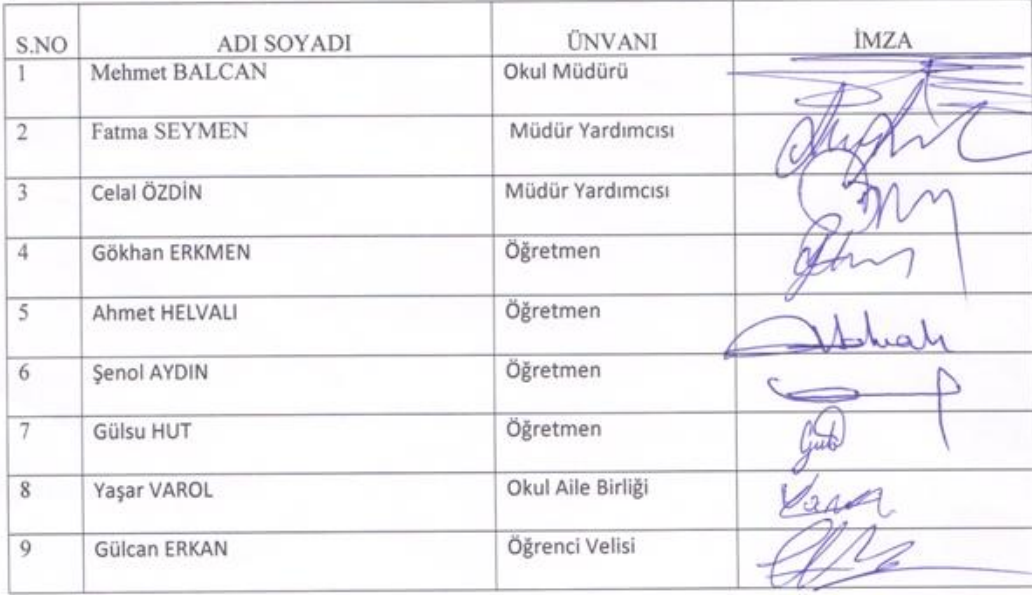 S.NO ADI SOYADI ÜNVANI İMZA
1 Mehmet BALCAN Okul Müdürü
2 Fatma SEYMEN Müdür Yardımcısı
3 Celal ÖZDİN Müdür Yardımcısı
4 Gökhan ERKMEN Öğretmen
5 Ahmet HELVALI Öğretmen
6 Şenol AYDIN Öğretmen
7 Gülsu HUT Öğretmen
8 Yaşar VAROL Okul Aile Birliği
9 Gülcan ERKAN Öğrenci Velisi